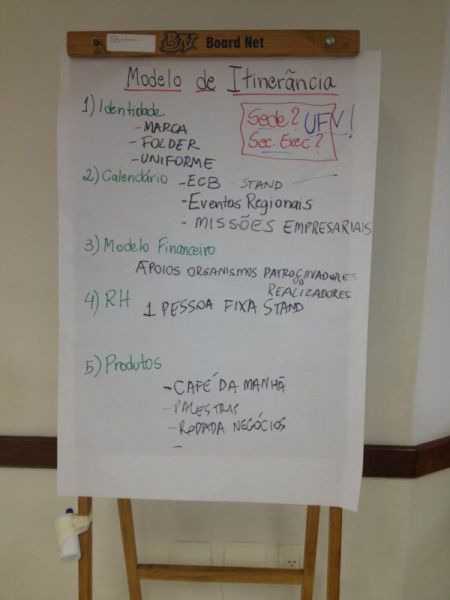 BN Board Net
Modelo de Itinerância
1) Identidade
- MARCA
- FOLDER
- UNIFORME
Sede? UFV!
Sec. Exec?
2) Calendário - ECB - STAND
- Eventos Regionais
- MISSÕES EMPRESARIAIS
3) Modelo Financeiro
APOIOS ORGANISMOS PATROCINADORES
REALIZADORES
4) RH 1 PESSOA FIXA STAND
5) Produtos
- CAFÉ DA MANHÃ
- PALESTRAS
- RODADA NEGÓCIOS
-